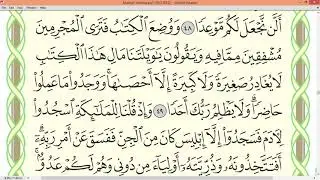 أَلَّن نَّجْعَلَ لَكُم مَّوْعِدًا ٤٨ وَوُضِعَ ٱلْكِتَٰبُ فَتَرَى ٱلْمُجْرِمِينَ
مُشْفِقِينَ مِمَّا فِيهِ وَيَقُولُونَ يَٰوَيْلَتَنَا مَالِ هَٰذَا ٱلْكِتَٰبِ
لَا يُغَادِرُ صَغِيرَةً وَلَا كَبِيرَةً إِلَّآ أَحْصَىٰهَا ۚ وَوَجَدُوا۟ مَا عَمِلُوا۟
حَاضِرًا ۗ وَلَا يَظْلِمُ رَبُّكَ أَحَدًا ٤٩ وَإِذْ قُلْنَا لِلْمَلَٰٓئِكَةِ ٱسْجُدُوا۟
لِـَٔادَمَ فَسَجَدُوٓا۟ إِلَّآ إِبْلِيسَ كَانَ مِنَ ٱلْجِنِّ فَفَسَقَ عَنْ أَمْرِ رَبِّهِۦٓ ۗ
أَفَتَتَّخِذُونَهُۥ وَذُرِّيَّتَهُۥٓ أَوْلِيَآءَ مِن دُونِى وَهُمْ لَكُمْ عَدُوٌّۢ ۚ